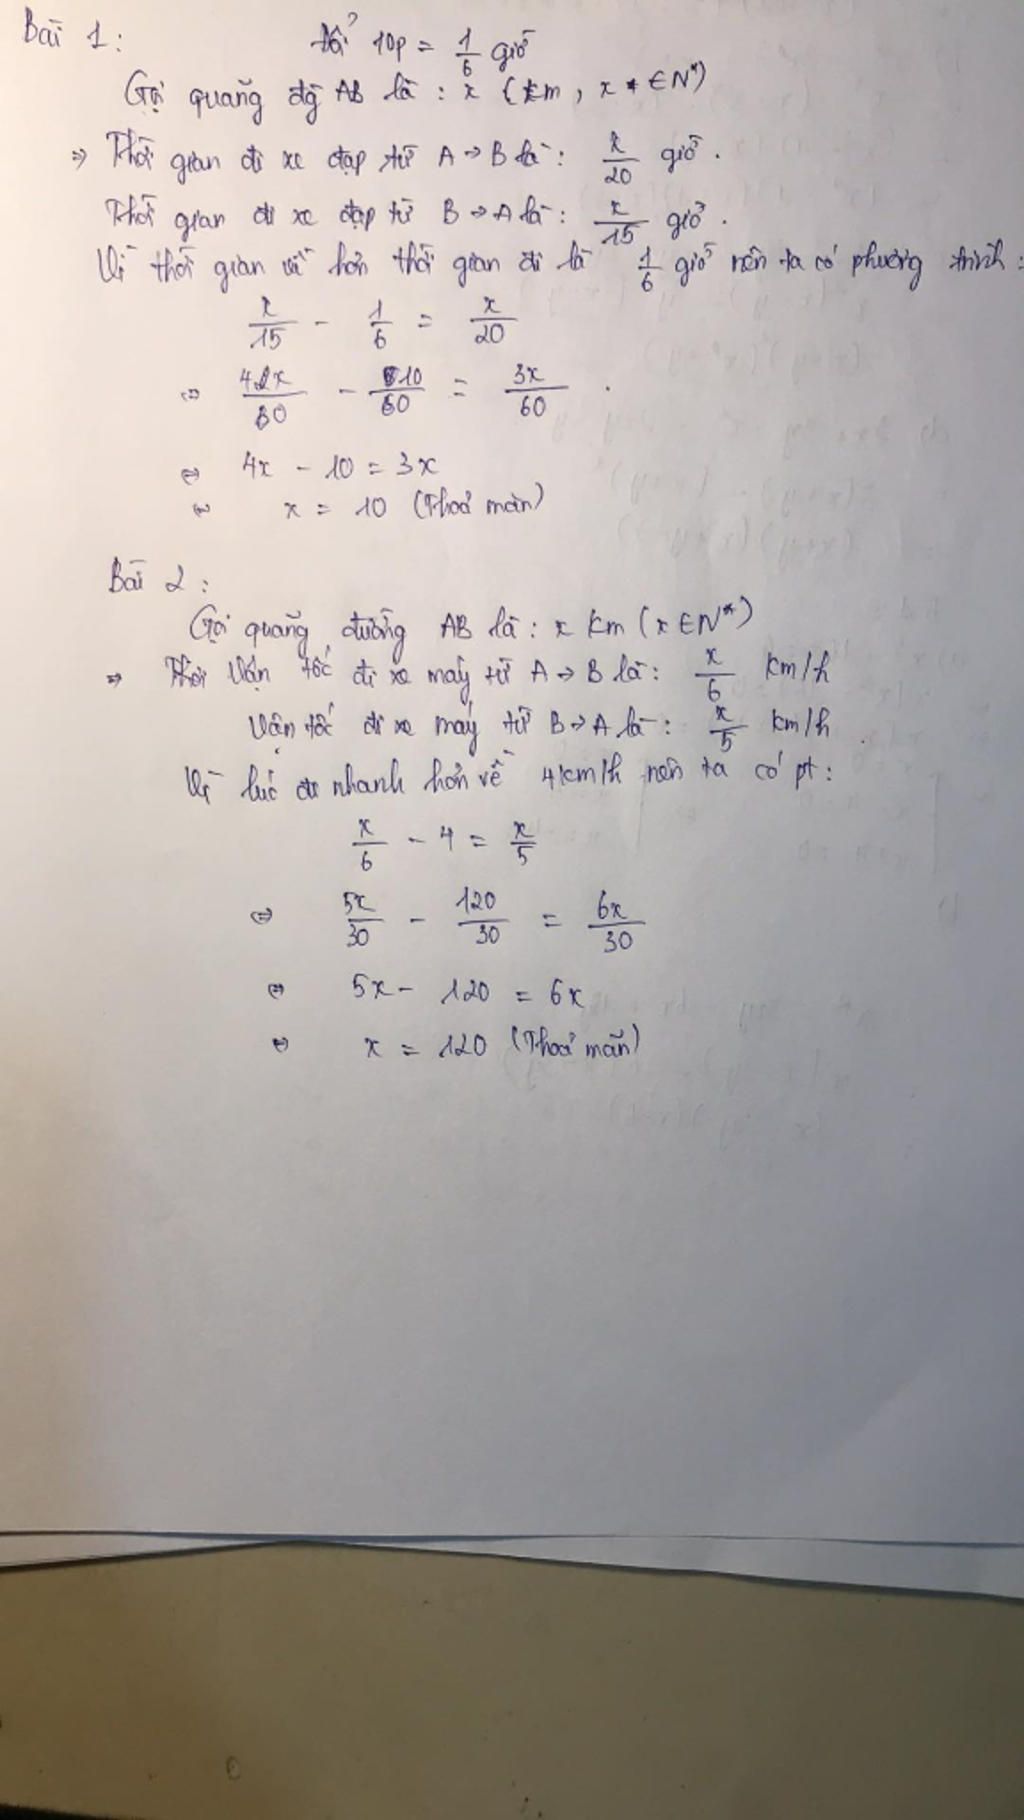 Bài 1: Đổi 10p = 1/6 giờ
Gọi quãng đg AB là : x (km, x ∈ N*)
⇒ Thời gian đi xe đạp từ A → B là : x/20 giờ.
Thời gian đi xe đạp từ B → A là : x/15 giờ.
Vì thời gian về hơn thời gian đi là 1/6 giờ nên ta có phương trình :
x/15 - 1/6 = x/20
⇔ 4x/60 - 10/60 = 3x/60
⇔ 4x - 10 = 3x
⇔ x = 10 (Thoả mãn)
Bài 2 :
Gọi quãng đường AB là : x km (x ∈ N*)
⇒ Vận tốc đi xe máy từ A → B là : x/6 km/h
Vận tốc đi xe máy từ B → A là : x/5 km/h.
Vì lúc đi nhanh hơn về 4km/h nên ta có pt :
x/6 - 4 = x/5
⇔ 5x/30 - 120/30 = 6x/30
⇔ 5x - 120 = 6x
⇔ x = 120 (Thoả mãn)